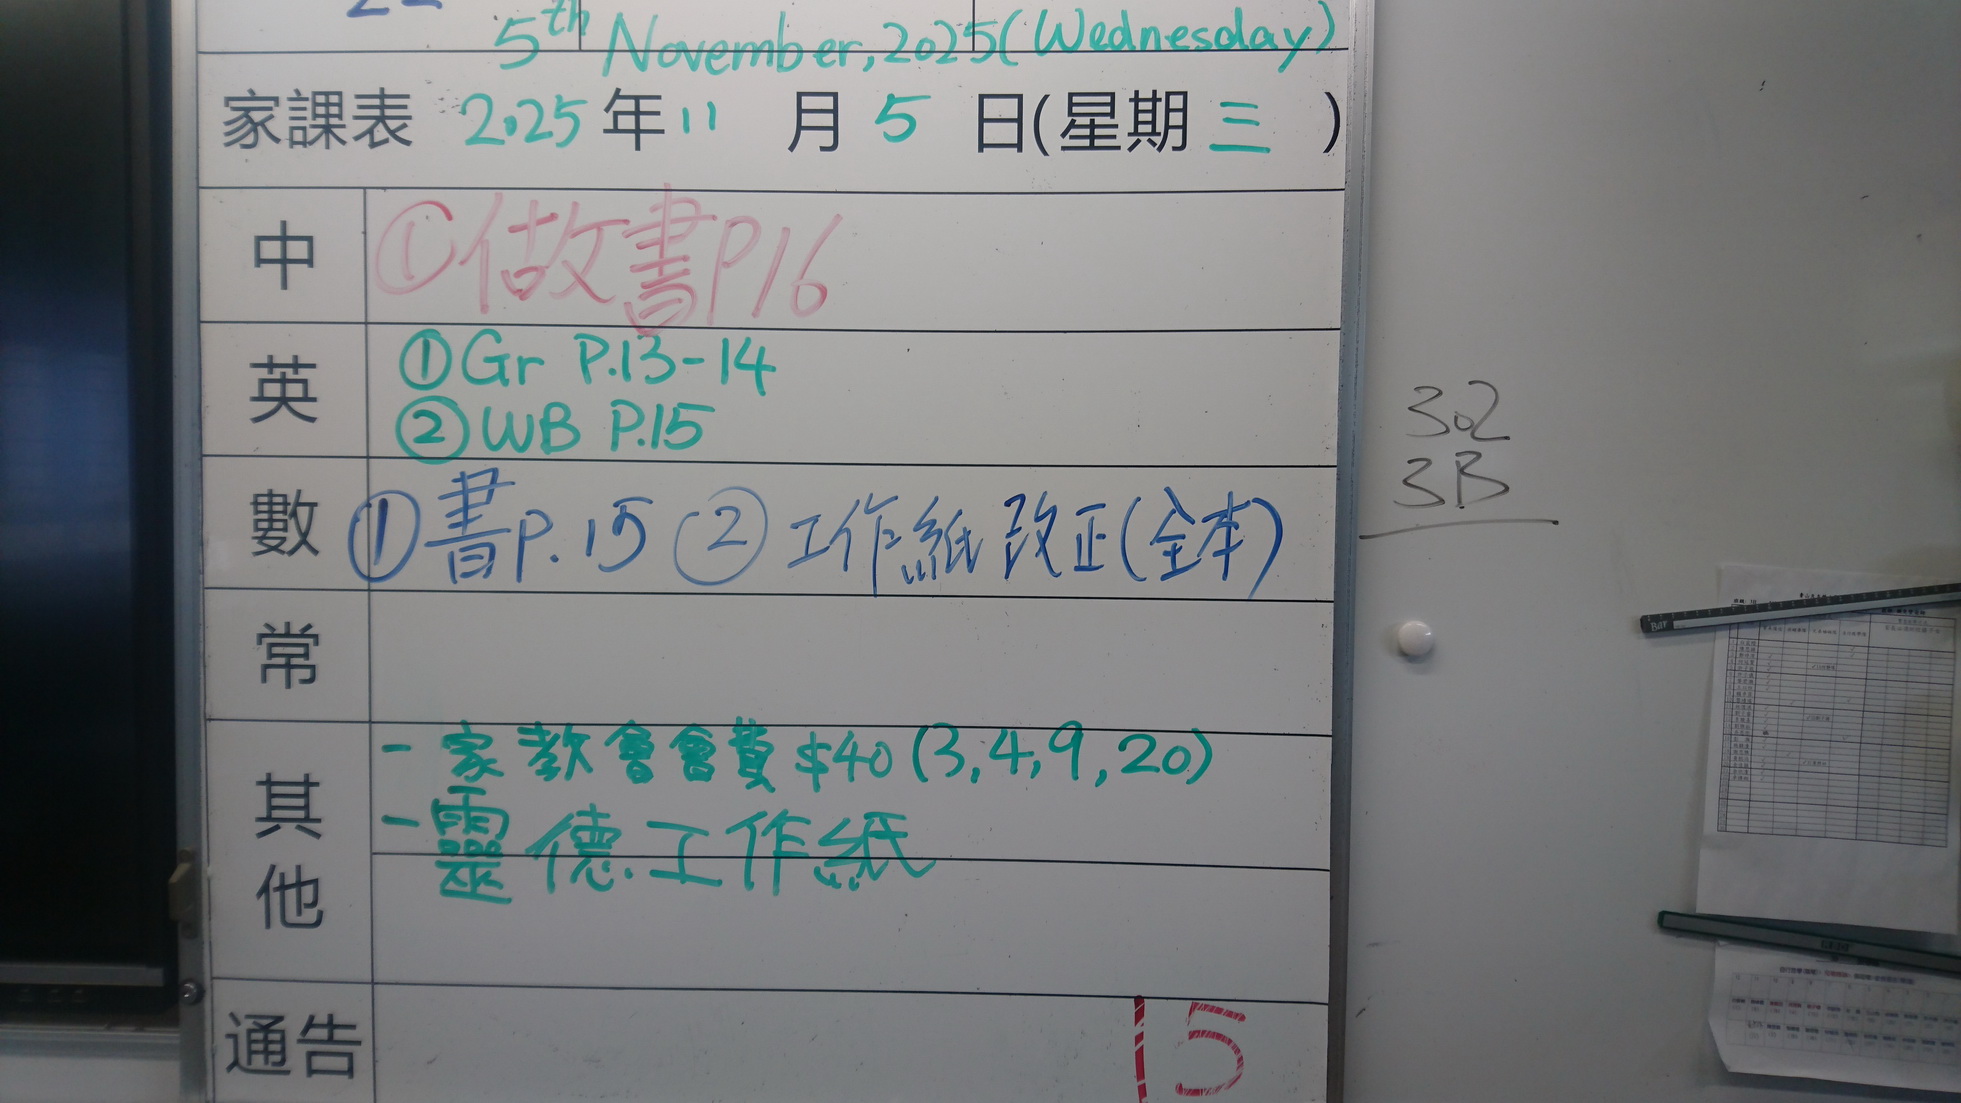 5th November, 2025 (Wednesday)
家課表 2025年11月5日(星期三)
中 ①做書P16
英 ①Gr P.13-14
②WB P.15
數 ①書P.15 ②工作紙改正(全本)
常
其他 -家教會會費$40 (3,4,9,20)
-靈德工作紙
通告 15
302
3B